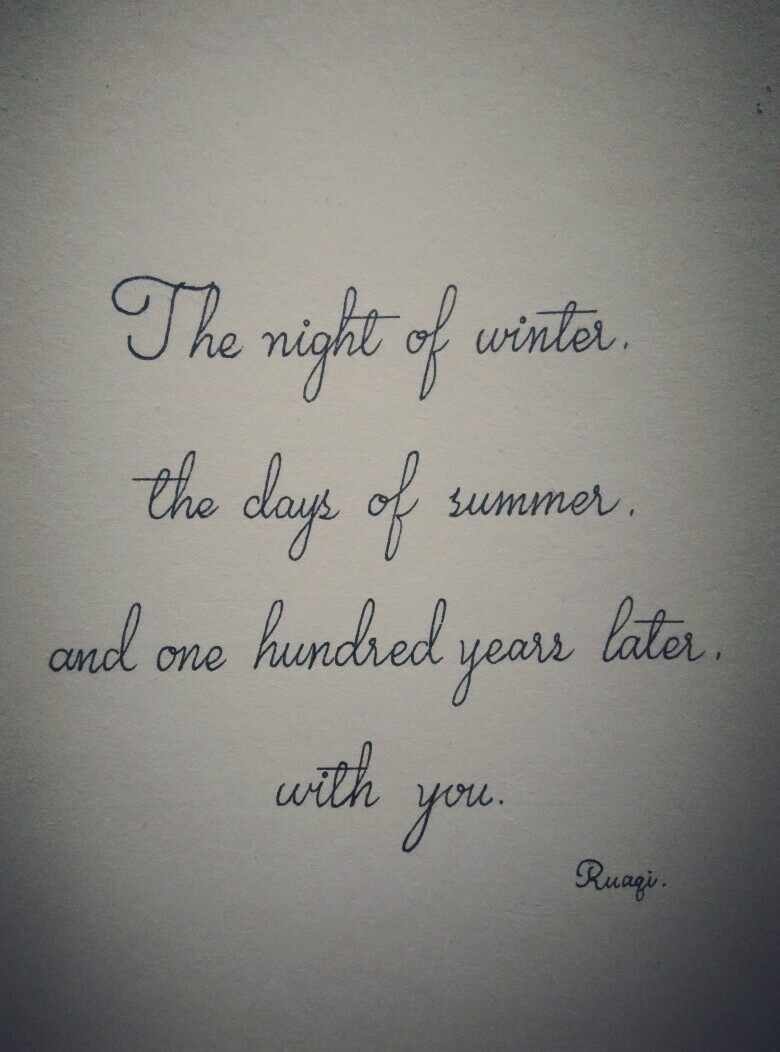 The night of winter.
the days of summer.
and one hundred years later.
with you.
Ruaqi.